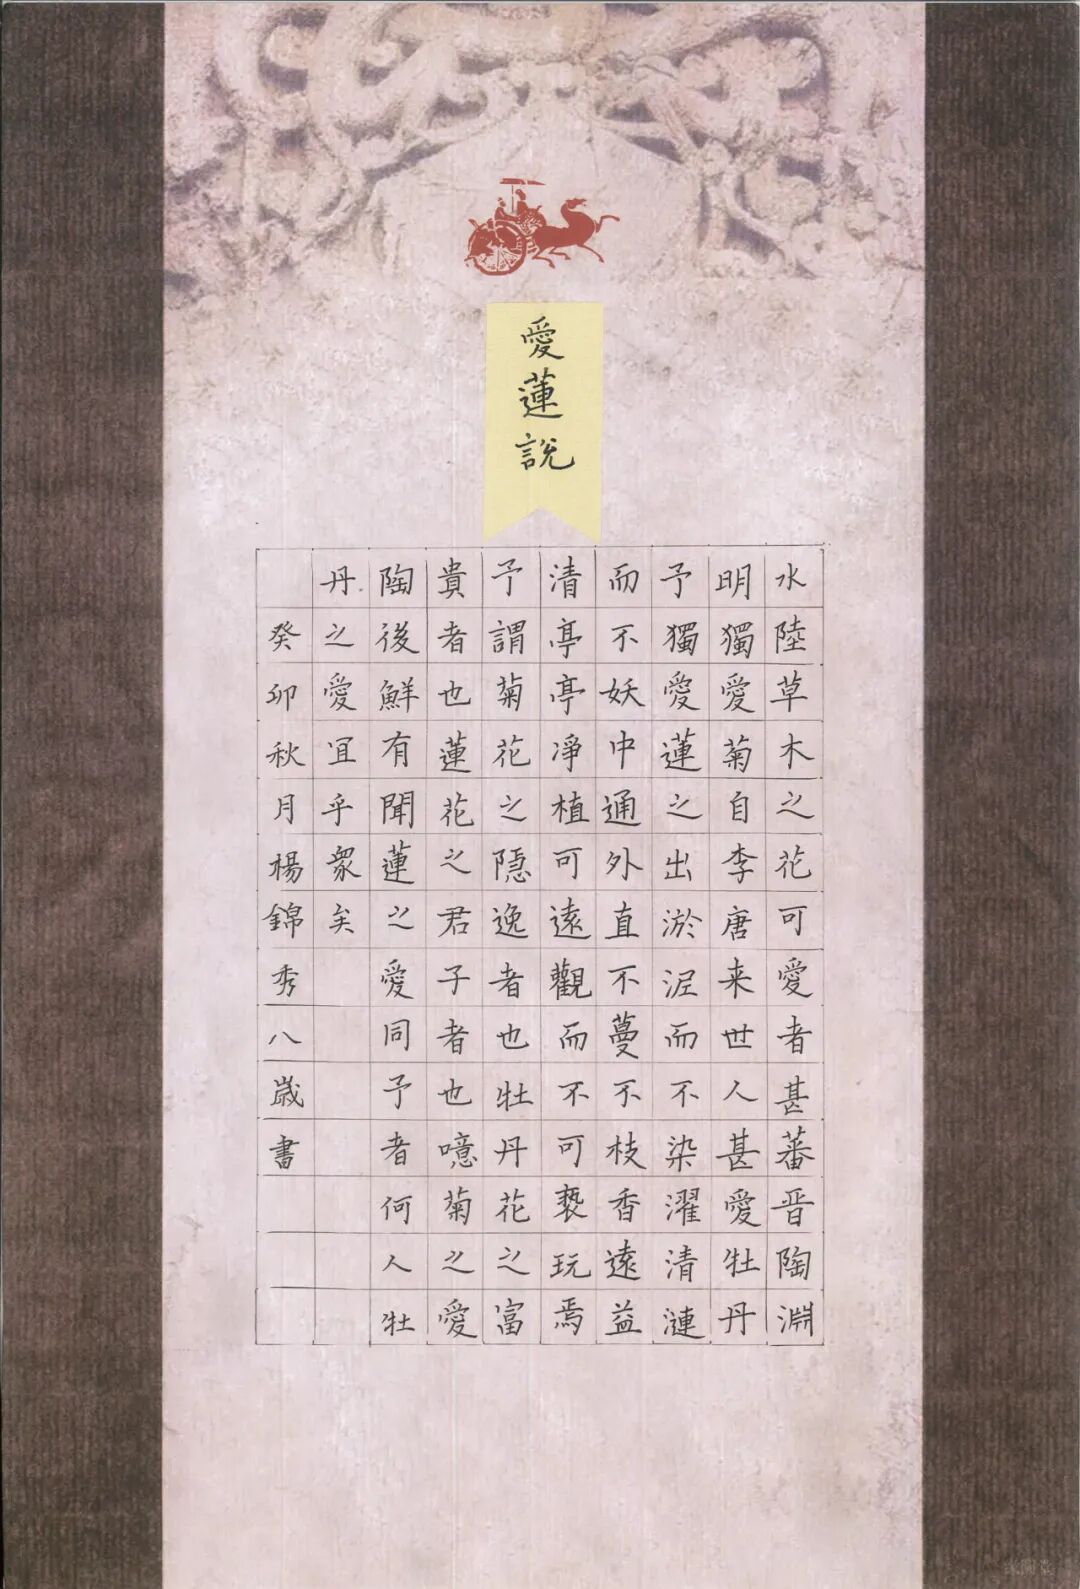 愛蓮說
水陸草木之花可愛者甚蕃晋陶淵
明獨愛菊自李唐来世人甚愛牡丹
予獨愛蓮之出淤泥而不染濯清漣
而不妖中通外直不蔓不枝香遠益
清亭亭凈植可遠觀而不可褻玩焉
予謂菊花之隱逸者也牡丹花之富
貴者也蓮花之君子者也噫菊之愛
陶後鮮有聞蓮之愛同予者何人牡
丹之愛宜乎眾矣
癸卯秋月楊錦秀八歲書